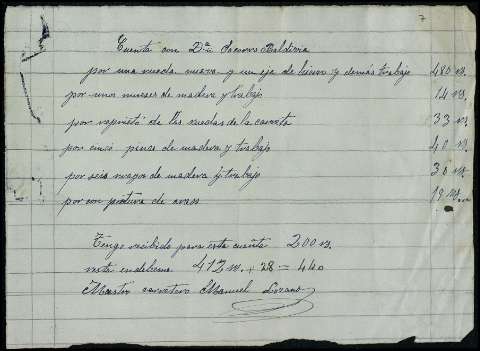 Cuenta con Dª Socorro Baldivia
por una rueda nueva y un eje de hierro y demás trabajo 480 rs.
por unos de madera y trabajo 14 rs.
por de las ruedas de la carreta 33 rs.
por cinco de madera y trabajo 40 rs.
por seis de madera y trabajo 30 rs.
por con pintura de 19 rs.
Tengo recibido para esta cuenta 200 rs.
resta en deberme 412 rs. + 28 = 440
Mastro carretero Manuel Lozano